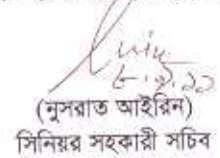 ৮.৭.১১
(নুসরাত আইরিন)
সিনিয়র সহকারী সচিব